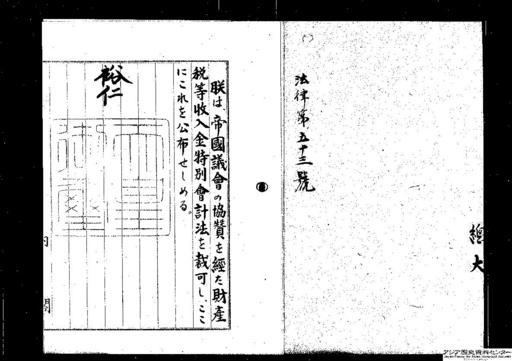 法律第五十三號
朕は、帝國議會の協賛を經た財産
税等收入金特別會計法を裁可し、ここ
にこれを公布せしめる。
裕仁
御璽
内
閣
總
大
アジア歴史資料センター